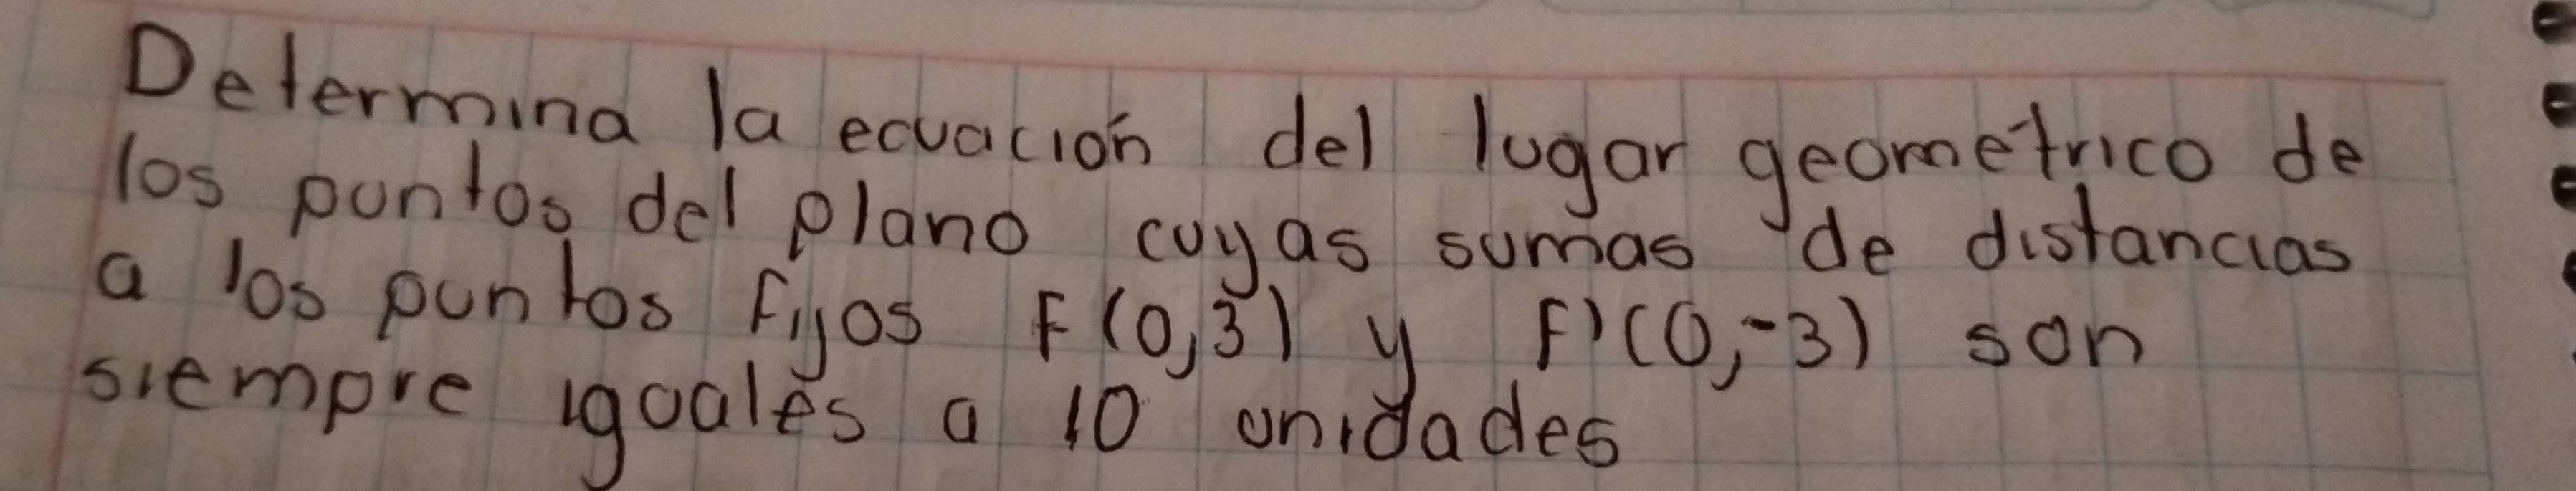 Determina la ecuación del lugar geometrico de
los puntos del plano cuyas sumas de distancias
a los puntos fijos F(0,3) y F'(0,-3) son
siempre iguales a 10 unidades